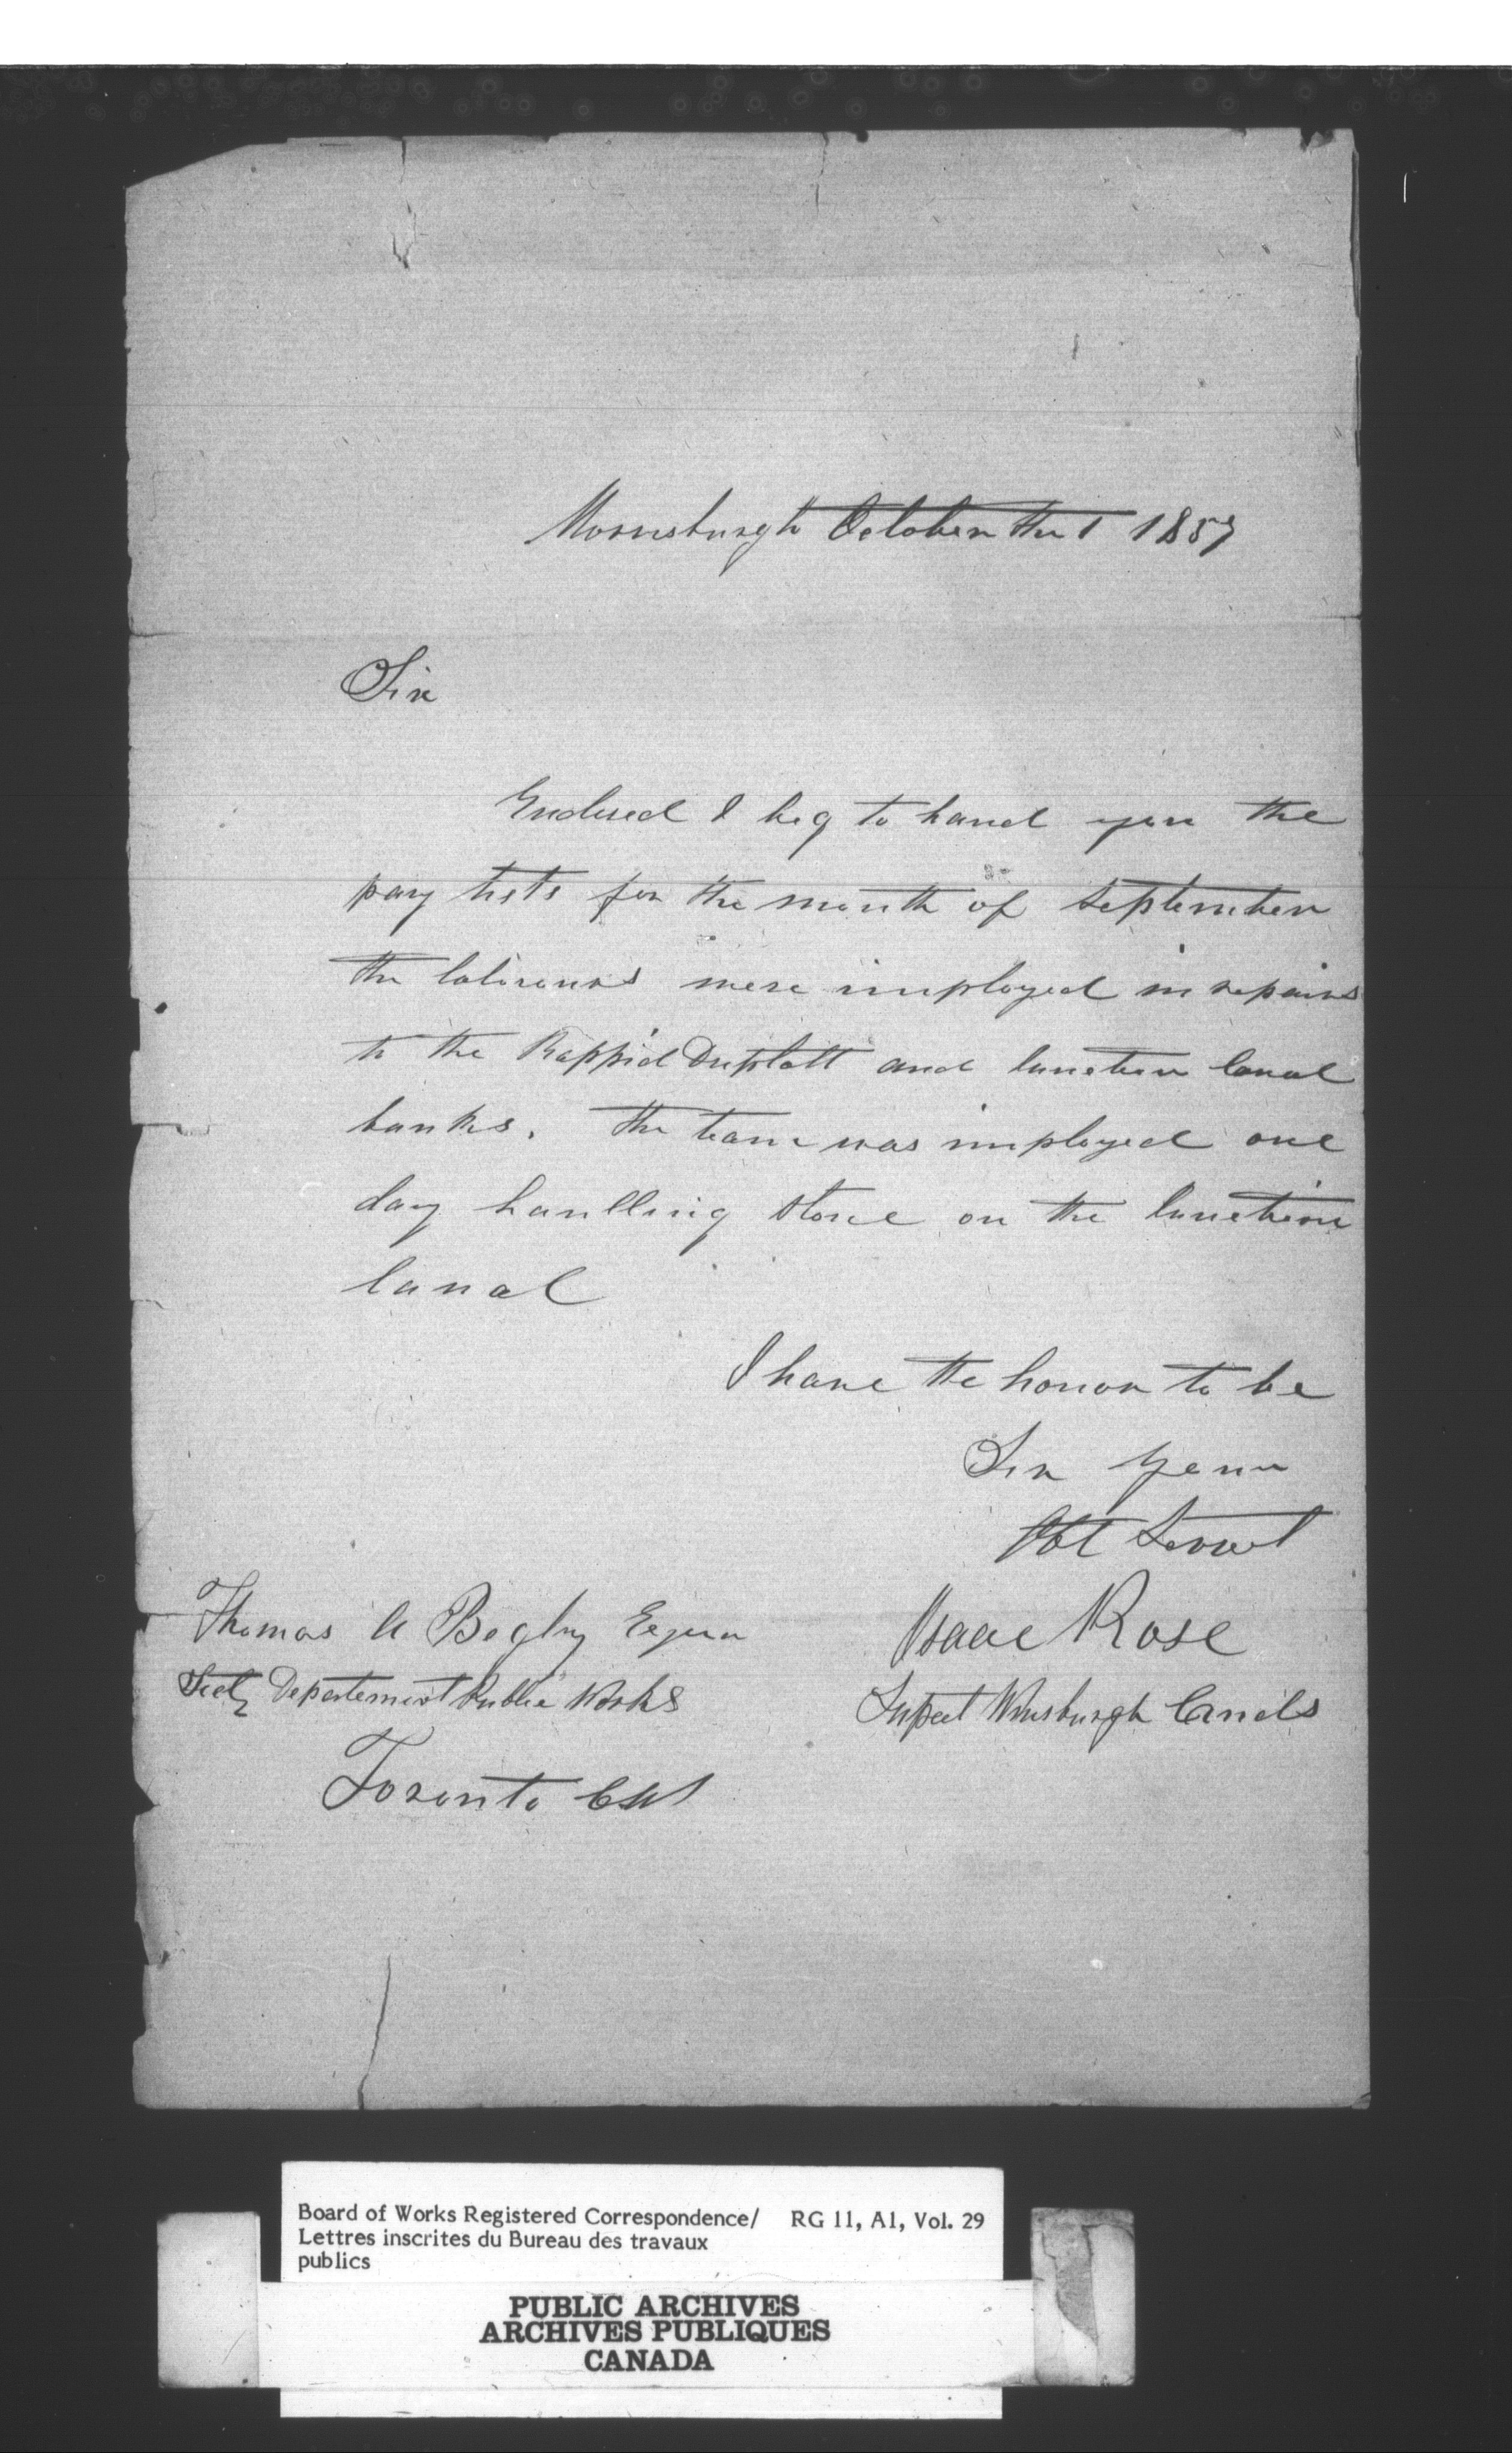 Morrisburgh October the 1 1857
Sir
Enclosed I beg to hand you the
pay lists for the month of September
the labirours were imployed in repairs
to the Rappid Duplatt and Junction Canal
banks. The team was imployed one
day haulling stone on the Junction
Canal
I have the honor to be
Sir your
Obt Servt
Thomas A Begly Esqur
Isaac Rose
Secty Departement Public Works
Supert Wmsburgh Canals
Toronto CW
Board of Works Registered Correspondence/ RG 11, A1, Vol. 29
Lettres inscrites du Bureau des travaux
publics
PUBLIC ARCHIVES
ARCHIVES PUBLIQUES
CANADA